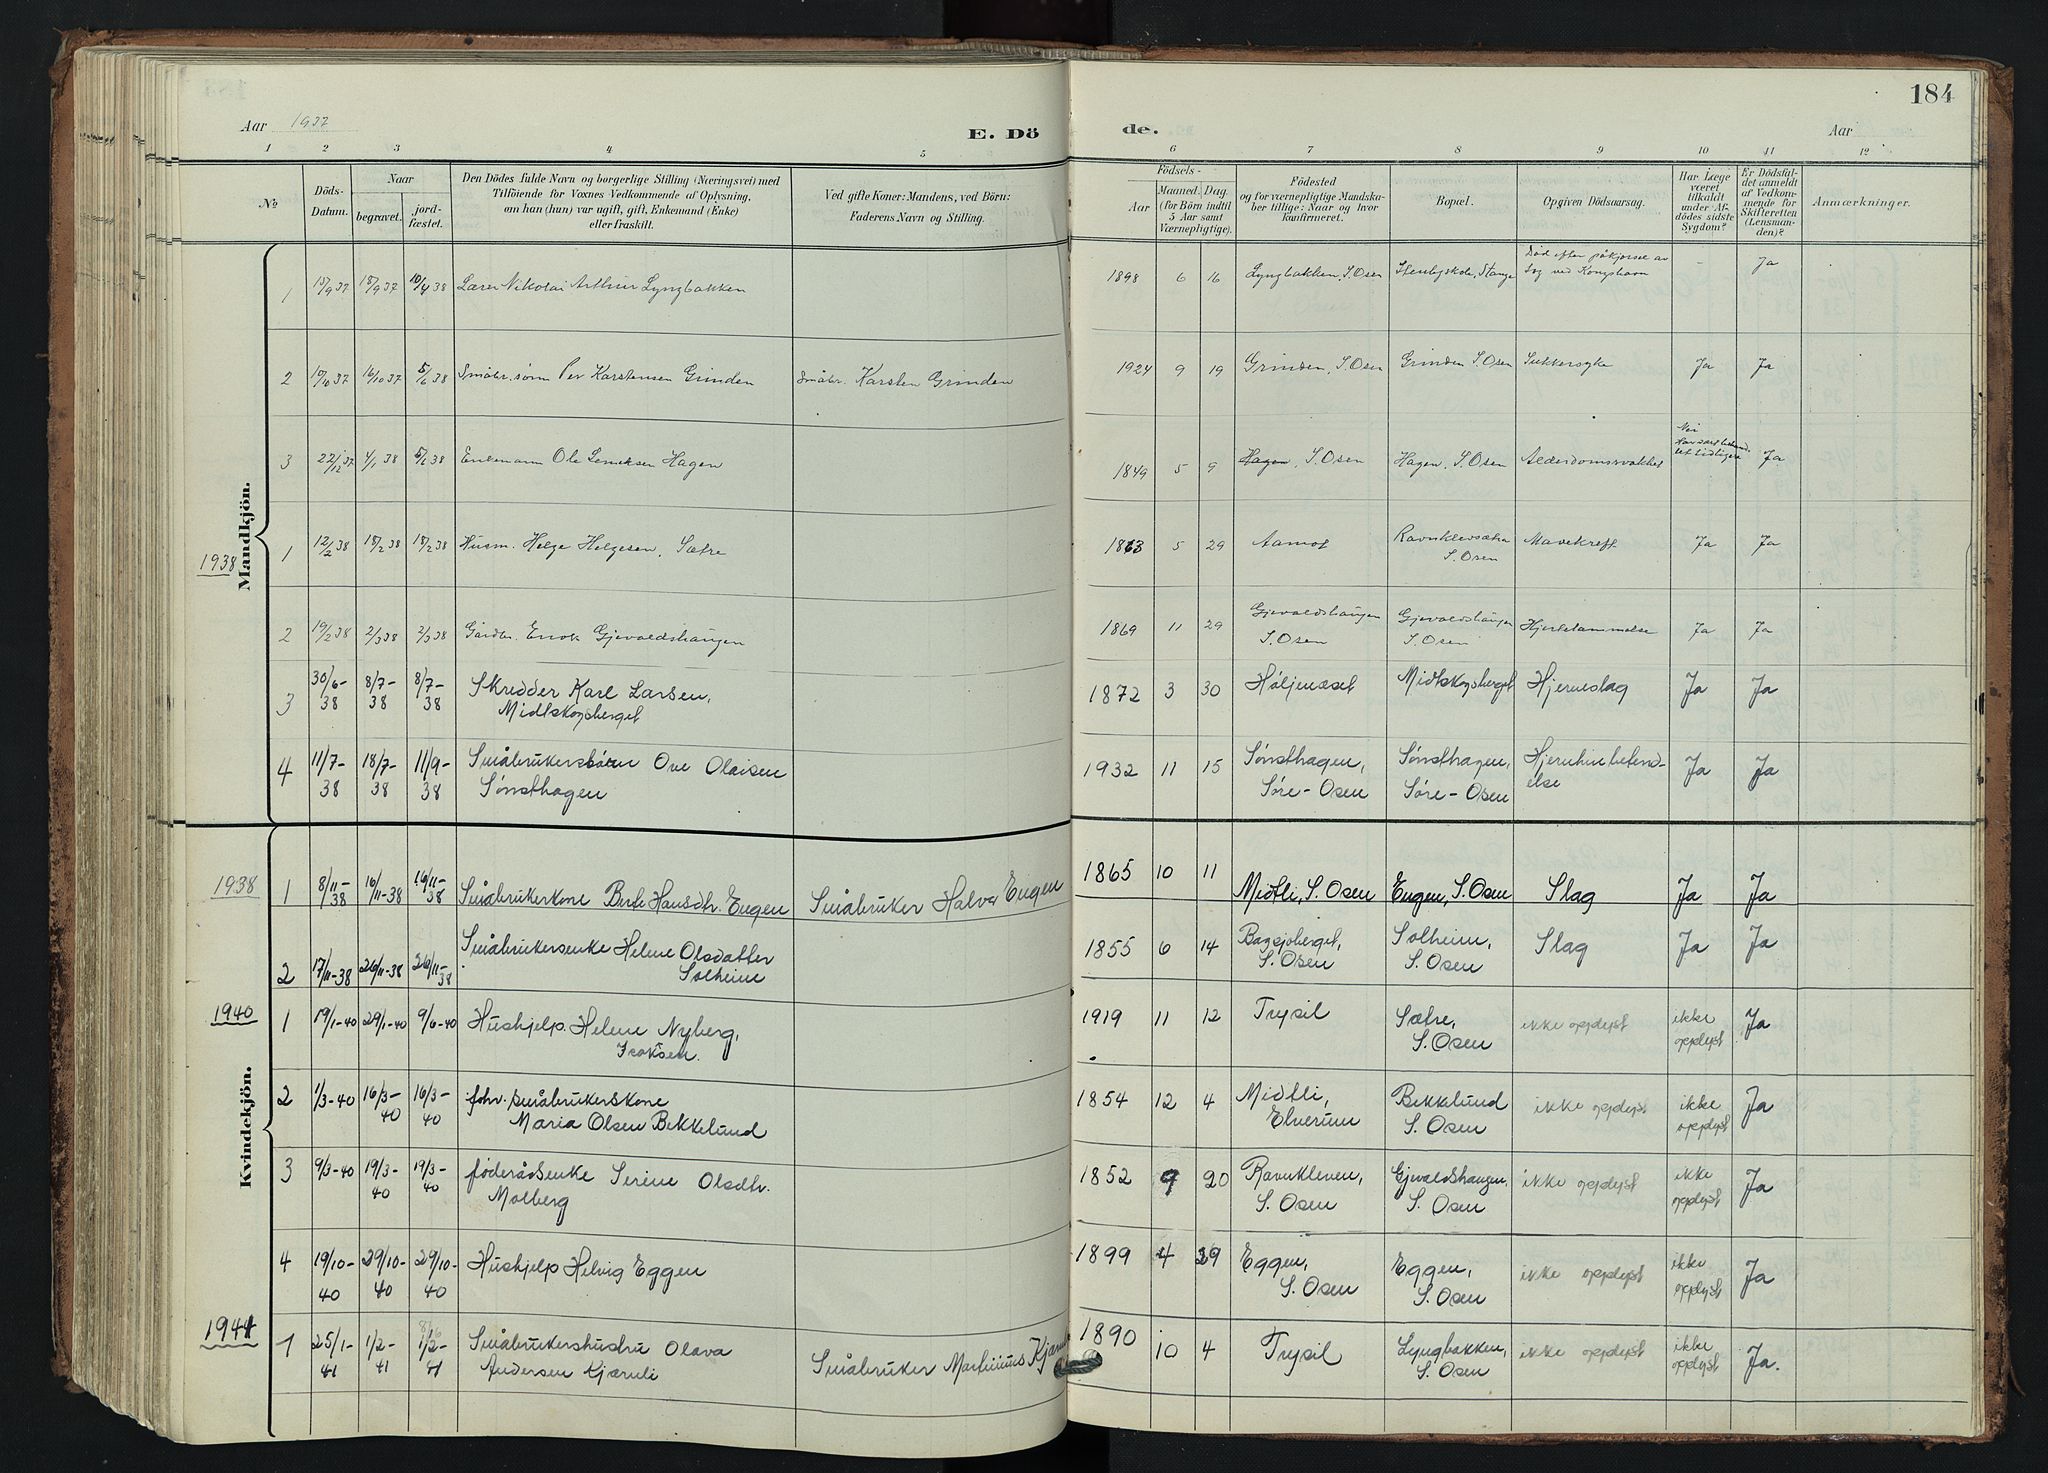 184
Aar 1937
E. Dö
de.
Aar
1 2 3 4 5 6 7 8 9 10 11 12
No
Döds-Datum.
Naar
begravet.
jord-fæstet.
Den Dödes fulde Navn og borgerlige Stilling (Næringsvei) med
Tilföiende for Voxnes Vedkommende af Oplysning,
om han (hun) var ugift, gift, Enkemand (Enke)
eller fraskilt.
Ved gifte Koner: Mandens, ved Börn:
Faderens Navn og Stilling.
Födsels-
Aar
Maaned. Dag.
(for Börn indtil
5 Aar samt
Værnepligtige).
Födested
og for værnepligtige Mandska-
ber tillige: Naar og hvor
konfirmeret.
Bopæl.
Opgiven Dödsaarsag.
Har Læge
været
tilkaldt
under Af-
dödes sidste
Sygdom?
Er Dödsfal-
det anmeldt
af Vedkom-
mende for
Skifteretten
(Lensman-
den)?
Anmærkninger.
Mandkjön.
1 15/9 37 18/9 37 10/4 38 Lærer Nikolai Arthur Lyngbakken 1898 6 16 Lyngbakken, S. Osen Stenbyskole, Stange Död efter påkjörsel av tog ved - Ja
2 10/10 37 16/10 37 5/6 38 Småbr. sönn Per Karstensen Grinden Småbr. Karsten Grinden 1924 9 19 Grinden, S. Osen Grinden S. Osen Sukkersyke Ja Ja
3 22/12 37 4/1 38 5/6 38 Enkemann Ole Hagen 1849 5 9 Hagen, S. Osen Hagen, S. Osen Alderdomssvakhet Nei tidligere Ja
1938
1 12/2 38 18/2 38 18/2 38 Husm. Helge Helgesen, Sætre 1863 5 29 Aamot S. Osen Mavekreft Ja Ja
2 19/2 38 2/3 38 2/3 38 Gårdbr. Enok Gjevaldshaugen 1869 11 29 Gjevaldshaugen S. Osen Gjevaldshaugen S. Osen Hjertelammelse Ja Ja
3 30/6-38 8/7-38 8/7-38 Skredder Karl Larsen,
Midtskogsberget 1872 3 30 Höljenæset Midtskogsberget Hjerneslag Ja Ja
4 11/7-38 18/7-38 11/9-38 Småbrukersbarn Ove Olaisen
Sønsthagen 1932 11 15 Sønsthagen, Søre-Osen Sønsthagen, Søre-Osen Hjernhinbetend-else Ja Ja
Kvindekjön.
1938
1 8/11-38 16/11-38 16/11-38 Småbrukerkone Berte Hansdtr. Engen Småbruker Halvor Engen 1865 10 11 Midtli, S. Osen Engen, S. Osen Slag Ja Ja
2 17/11-38 26/11-38 26/11-38 Småbrukersenke Helene Olsdatter
Solheim 1855 6 14 Bagsjøberget, S. Osen Solheim, S. Osen Slag Ja Ja
1940
1 19/1-40 29/1-40 9/6-40 Hushjelp Helene Nyberg,
Isaksen. 1919 11 12 Trysil Sætre, S. Osen ikke opplyst ikke opplyst Ja
2 1/3-40 16/3-40 16/3-40 fohv. småbrukerskone
Maria Olsen Bekkelund 1854 12 4 Midtli, Elverum Bekkelund S. Osen ikke opplyst ikke opplyst Ja
3 9/3-40 19/3-40 19/3-40 föderådsenke Serine Olsdtr.
Molberg 1852 9 20 Ravnkleven, S. Osen Gjevaldshaugen, S. Osen ikke opplyst ikke opplyst Ja
4 19/10-40 29/10-40 29/10-40 Hushjelp Helvig Eggen 1899 4 29 Eggen, S. Osen Eggen, S. Osen ikke opplyst ikke opplyst Ja
1941
1 25/1-41 1/2-41 1/2-41 8/6 Småbrukershustru Olava
Andersen Kjærnli Småbruker Martinius 1890 10 4 Trysil Lyngbakken, S. Osen ikke opplyst ikke opplyst Ja.